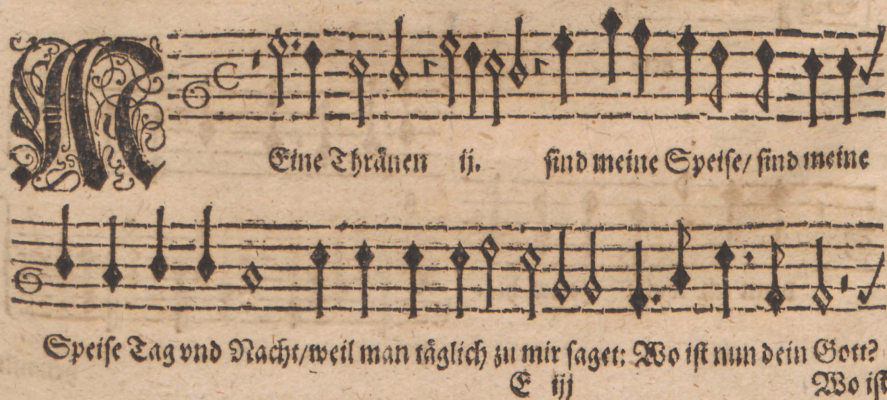 MEine Thränen ij. sind meine Speise/ sind meine
Speise Tag vnd Nacht/weil man täglich zu mir saget: Wo ist nun dein Gott?
E iij Wo ist